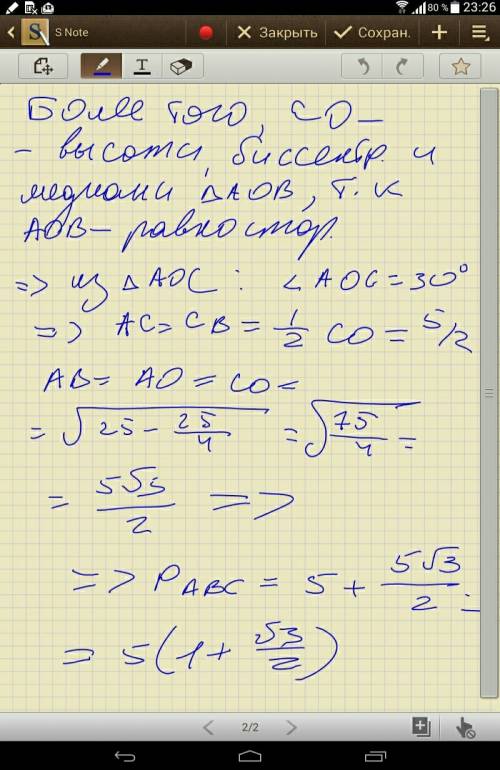 80 % 23:26
S Note
Закрыть
Сохран.
T
Более того, CO –
– высота, биссектр. и
медиана △AOB, т.к
AOB – равностор.
=> из △AOC: ∠AOC = 30°
=> AC = CB = 1/2 CO = 5/2
AB = AO = CO =
= √(25 - 25/4) = √(75/4) =
= 5√3/2 =>
=> P ABC = 5 + 5√3/2 =
= 5(1 + √3/2)
2/2